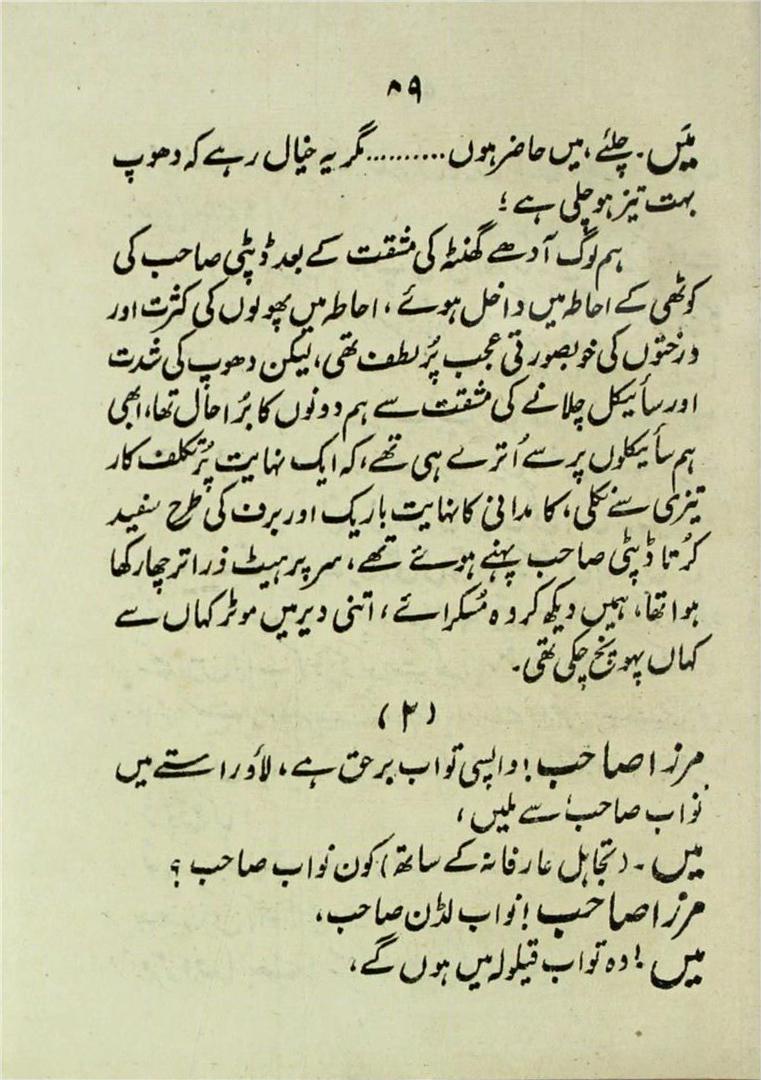 ۸۹
میں۔ چلئے، میں حاضر ہوں.......... مگر یہ خیال رہے کہ دھوپ
بہت تیز ہو چلی ہے ؛
ہم لوگ آدھے گھنٹہ کی مشقت کے بعد ڈپٹی صاحب کی
کوٹھی کے احاطہ میں داخل ہوئے، احاطہ میں پھولوں کی کثرت اور
درختوں کی خوبصورتی عجب پُر لطف تھی، لیکن دھوپ کی شدت
اور سائیکل چلانے کی مشقت سے ہم دونوں کا بُرا حال تھا، ابھی
ہم سائیکلوں پر سے اُترے ہی تھے، کہ ایک نہایت پُر تکلف کار
تیزی سے نکلی، کامدانی کا نہایت باریک اور برف کی طرح سفید
کُرتا ڈپٹی صاحب پہنے ہوئے تھے، سر پر ہیٹ ذرا ترچھا رکھا
ہوا تھا، ہمیں دیکھ کر وہ مُسکرائے، اتنی دیر میں موٹر کہاں سے
کہاں پہونچ چکی تھی۔
(۲)
مرزا صاحب! واپسی تو اب برحق ہے، لاؤ راستے میں
نواب صاحب سے ملیں،
میں۔ (تجاہل عارفانہ کے ساتھ) کون نواب صاحب ؟
مرزا صاحب! نواب لڈن صاحب،
میں! وہ تو اب قیلولہ میں ہوں گے،